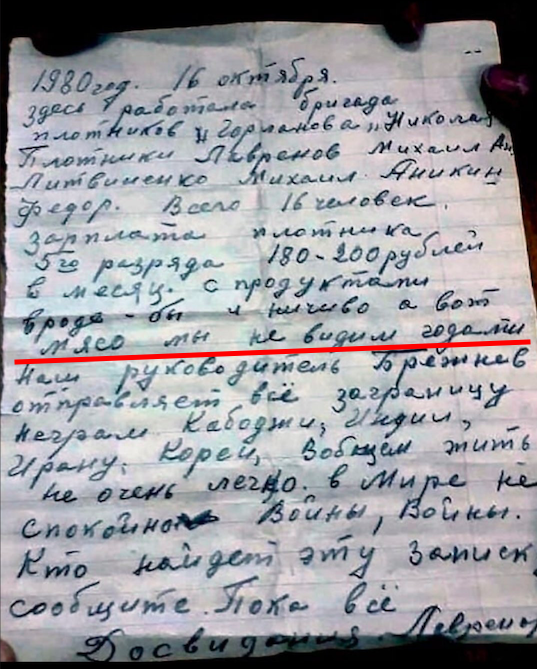 1980 год. 16 октября.
здесь работала бригада
плотников "Горланова" Никола
Плотники Лавренов Михаил Ан.
Литвиненко Михаил. Аникин
Федор. Всего 16 человек.
Зарплата плотника
5го разряда 180-200 рублей
в месяц. с продуктами
вроде-бы и ничиво а вот
мясо мы не видим годами
Наш руководитель Брежнев
отправляет всё заграницу
Неграм Кабоджи, Индии,
Ирану. Кореи, Вобщем жить
не очень легко. в Мире не
спокойно Войны, Войны.
Кто найдет эту записк
сообщите. Пока всё
Досвидания. Лавренов